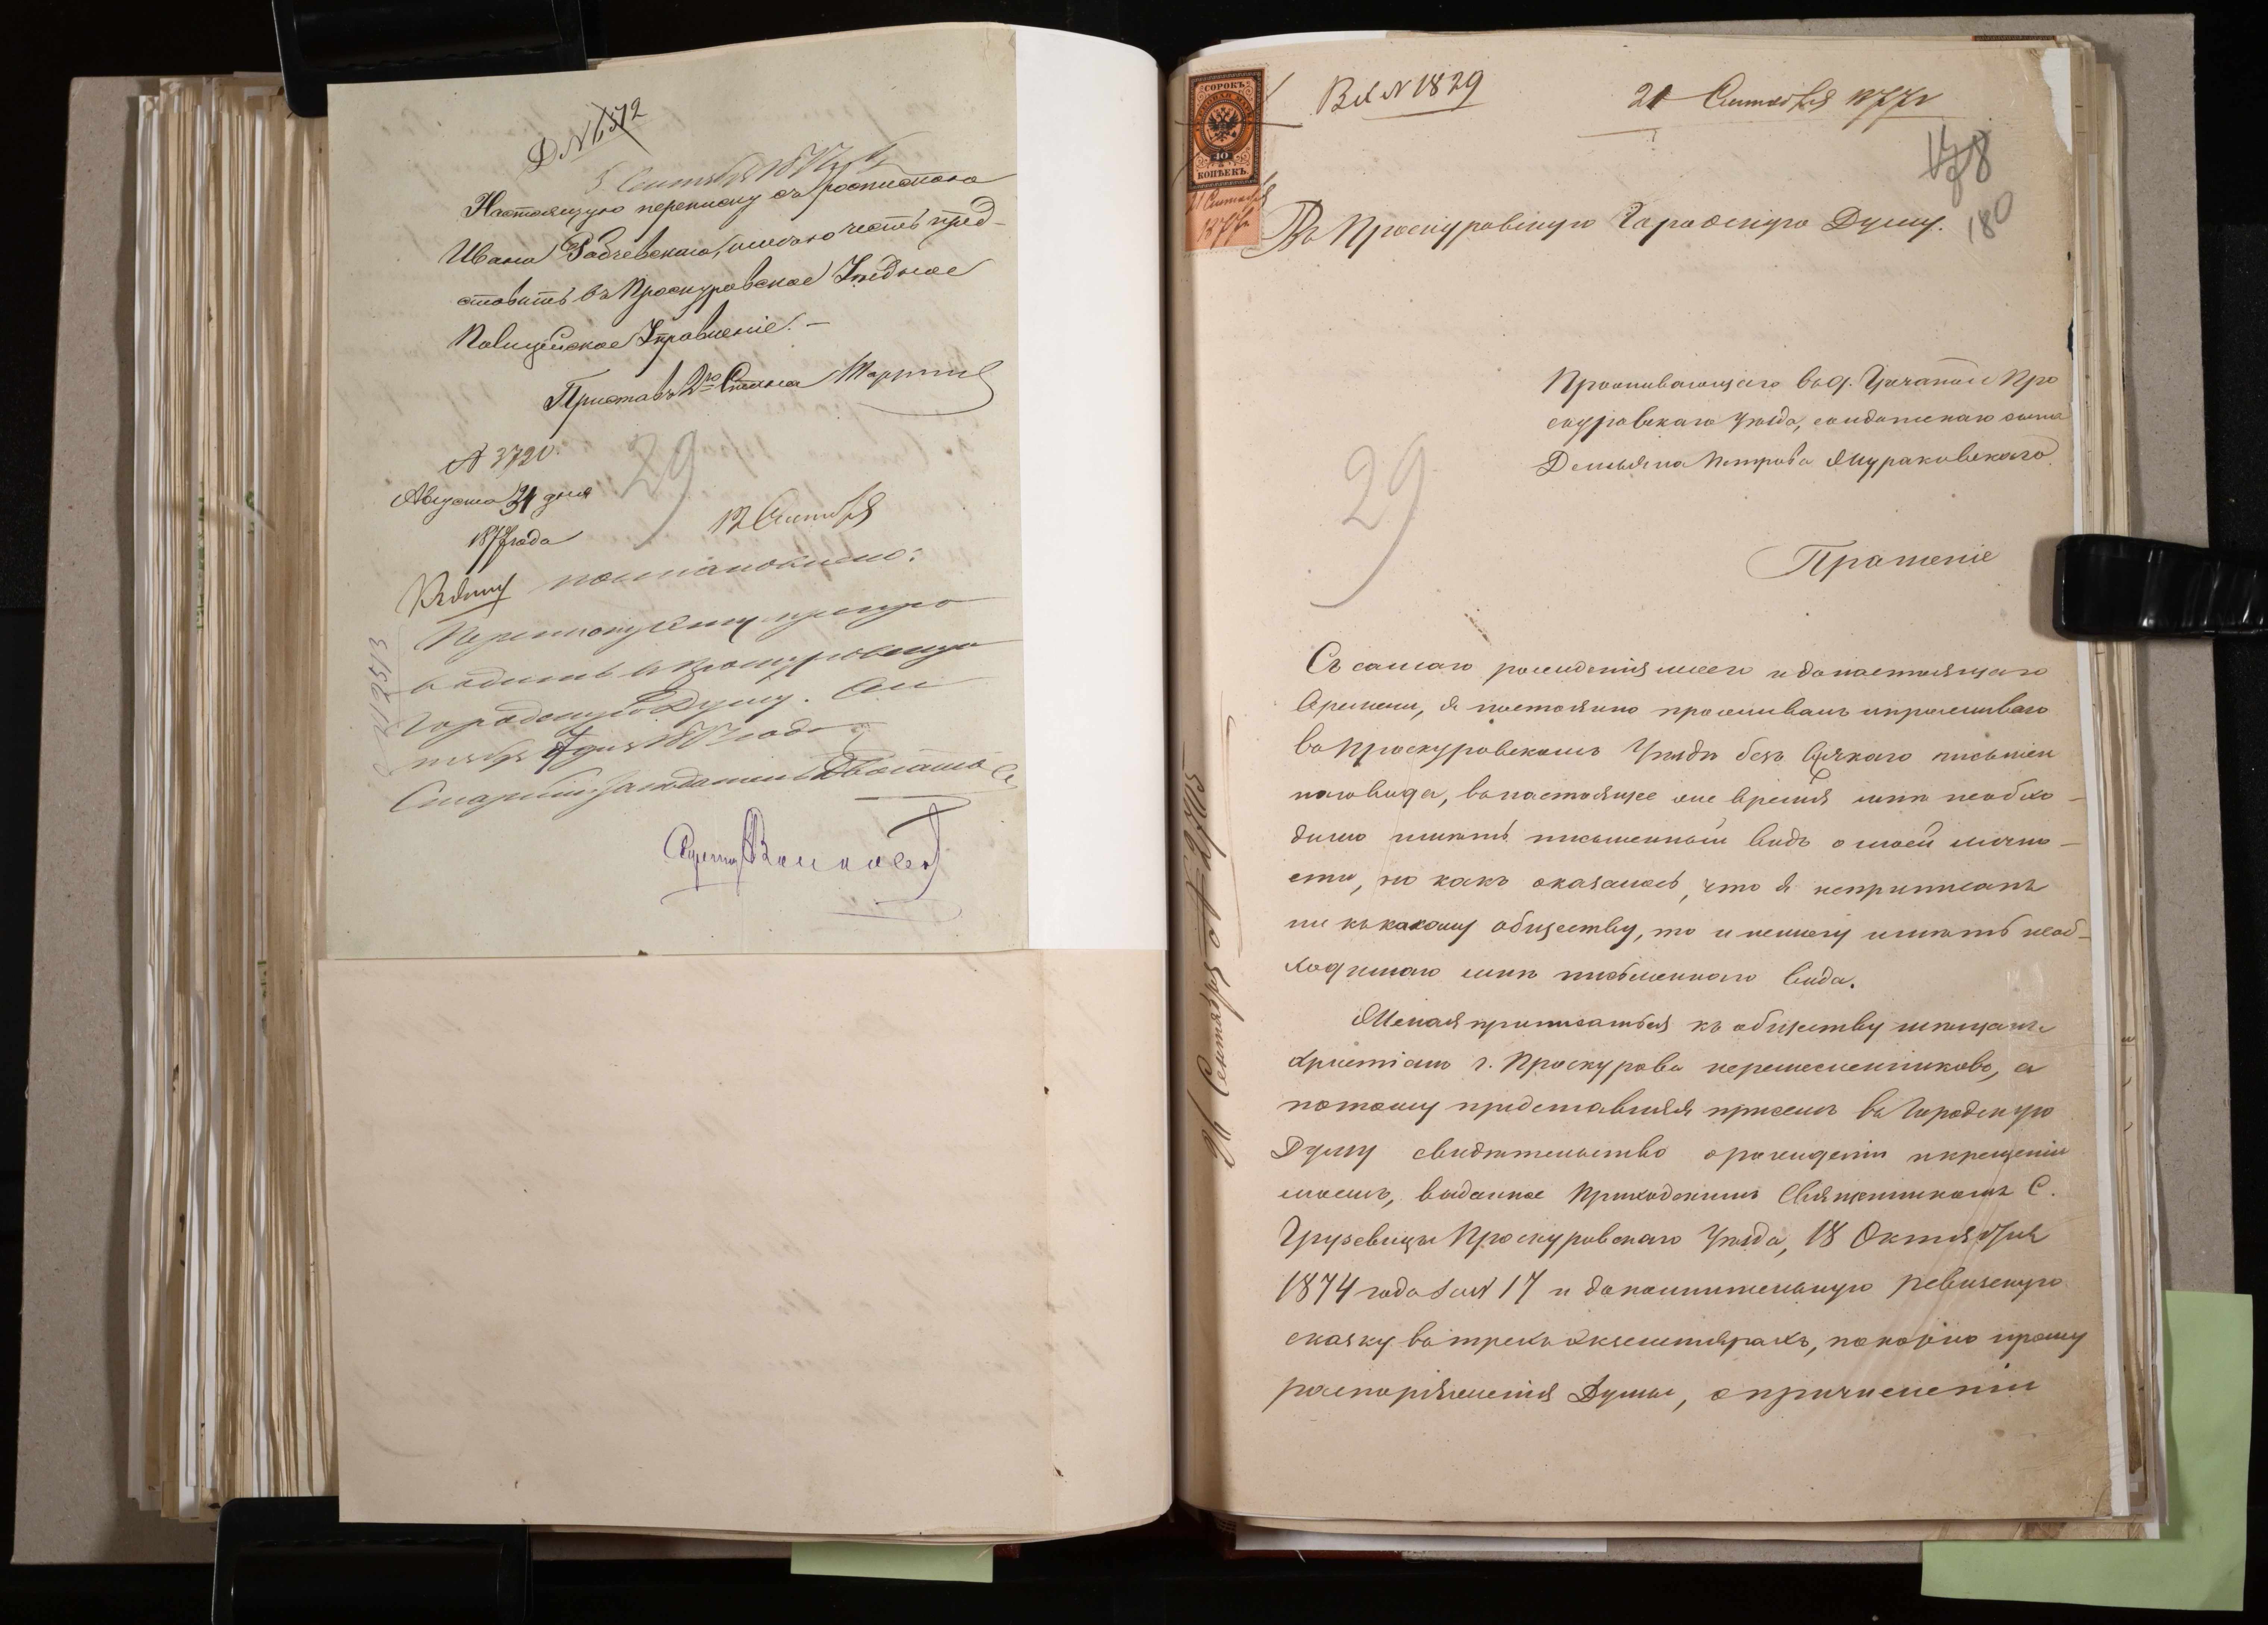 5 Сентября 1877 г.
Настоящую переписку съ роспискою
Ивана имею честь пред-
ставить въ Проскуровское Уѣздное
Полицейское Управленіе. —
Приставъ 2го Стана
№ 3720
Августа 31 дня
1877 года
29
12 Сентября
постановлено:
Переписку сію препро
водить въ Проскуровскую
Городскую Думу. Сен
тября 7 дня 1877 года
Вх № 1829
21 Сентября 1877 г
СОРОКЪ
40
КОПѢЕКЪ.
21 Сентября
1877 г.
178
180
Въ Проскуровскую Городскую Думу.
Проживающаго въ д. Про
скуровскаго уѣзда, солдатскаго сына
Демьяна Петрова Жураковскаго
29
Прошеніе
Съ самаго рожденія моего и до настоящаго
времени, я постоянно проживалъ и проживаю
въ Проскуровскомъ Уѣздѣ безъ всякаго письмен
наго вида, въ настоящее же время мнѣ необхо-
димо имѣть письменный видъ о моей лично-
сти, но какъ оказалось, что я неприписанъ
ни къ какому обществу, то и немогу имѣть необ-
ходимаго мнѣ письменнаго вида.
Желая приписаться къ обществу мѣщанъ
христіанъ г. Проскурова неремесленниковъ, а
потому представляя присемъ въ Городскую
Думу свидѣтельство о рожденіи и крещеніи
моемъ, выданное Приходскимъ Священникомъ С.
Грузевицы Проскуровскаго Уѣзда, 18 Октября
1874 года за № 17 и дополнительную ревизскую
сказку въ трехъ экземплярахъ, покорно прошу
распоряженія Думы, о причисленіи
26 Сентября № 2705